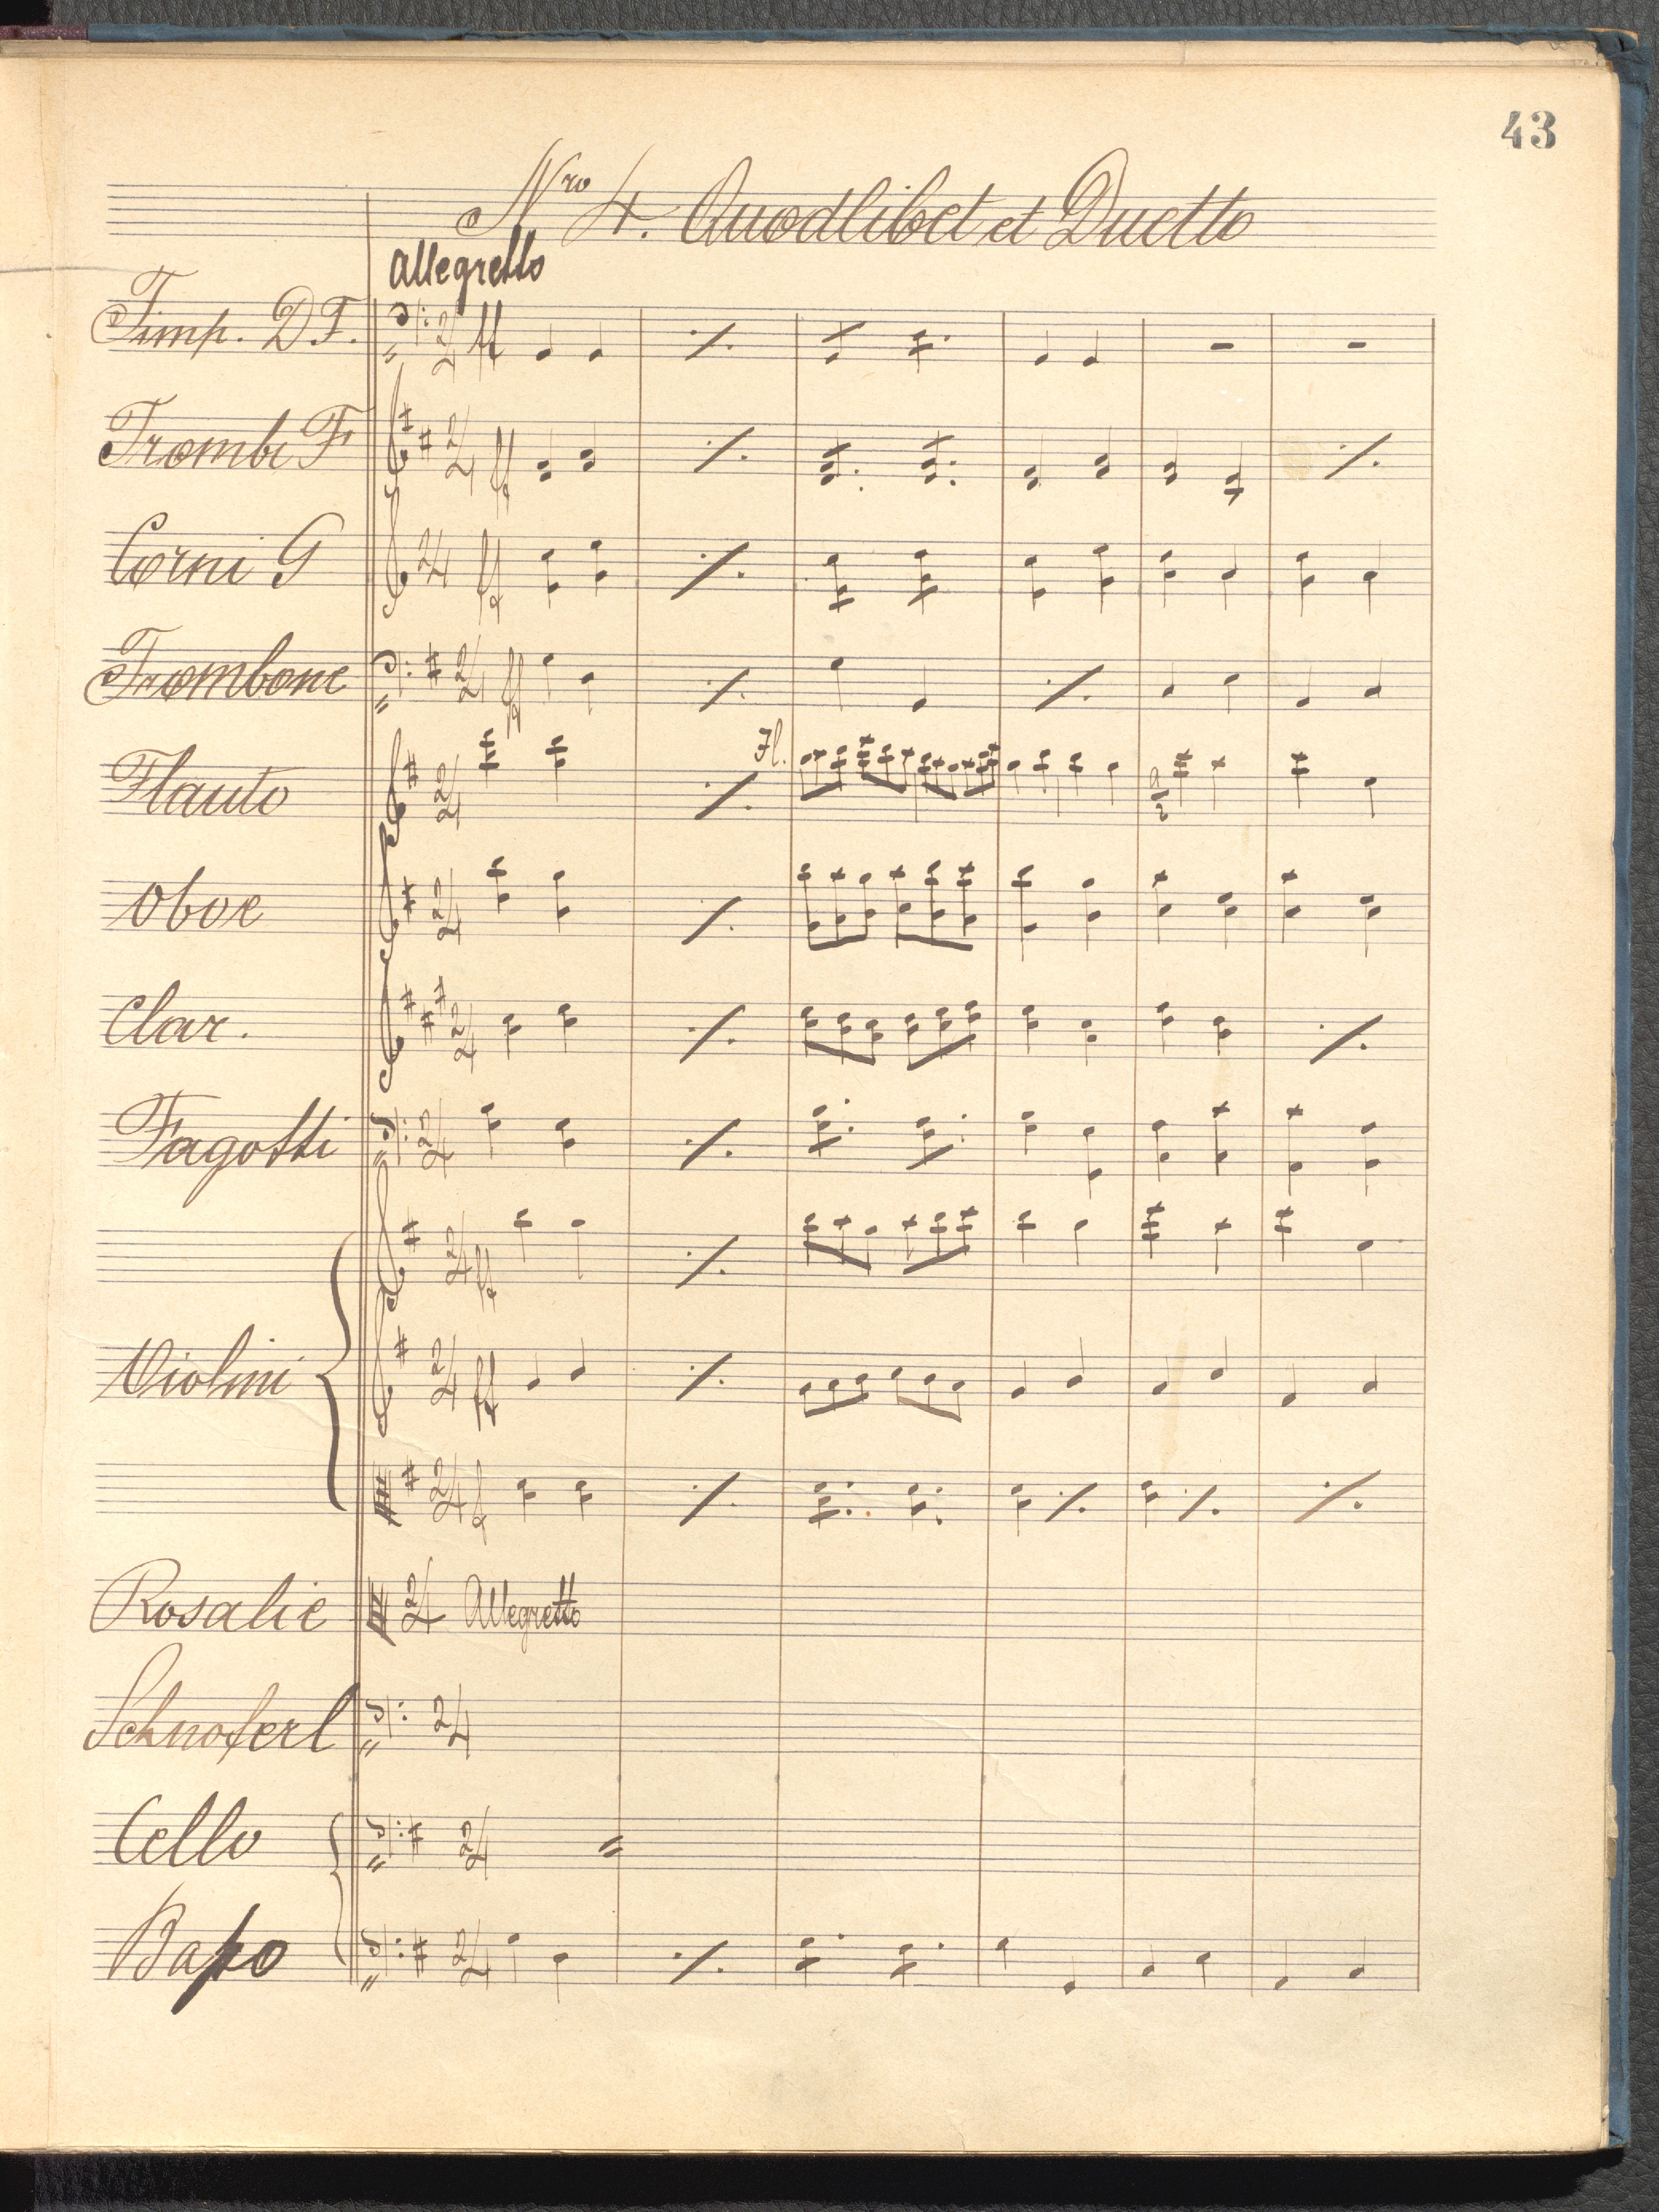 43
Nro 4. Quodlibet et Duetto
Allegretto
Timp. D F.
Trombe F
Corni G
Trombone
Flauto
Fl.
Oboe
Clar.
Fagotti
Violini
Rosalie
Allegretto
Schnoferl
Cello
Baſso